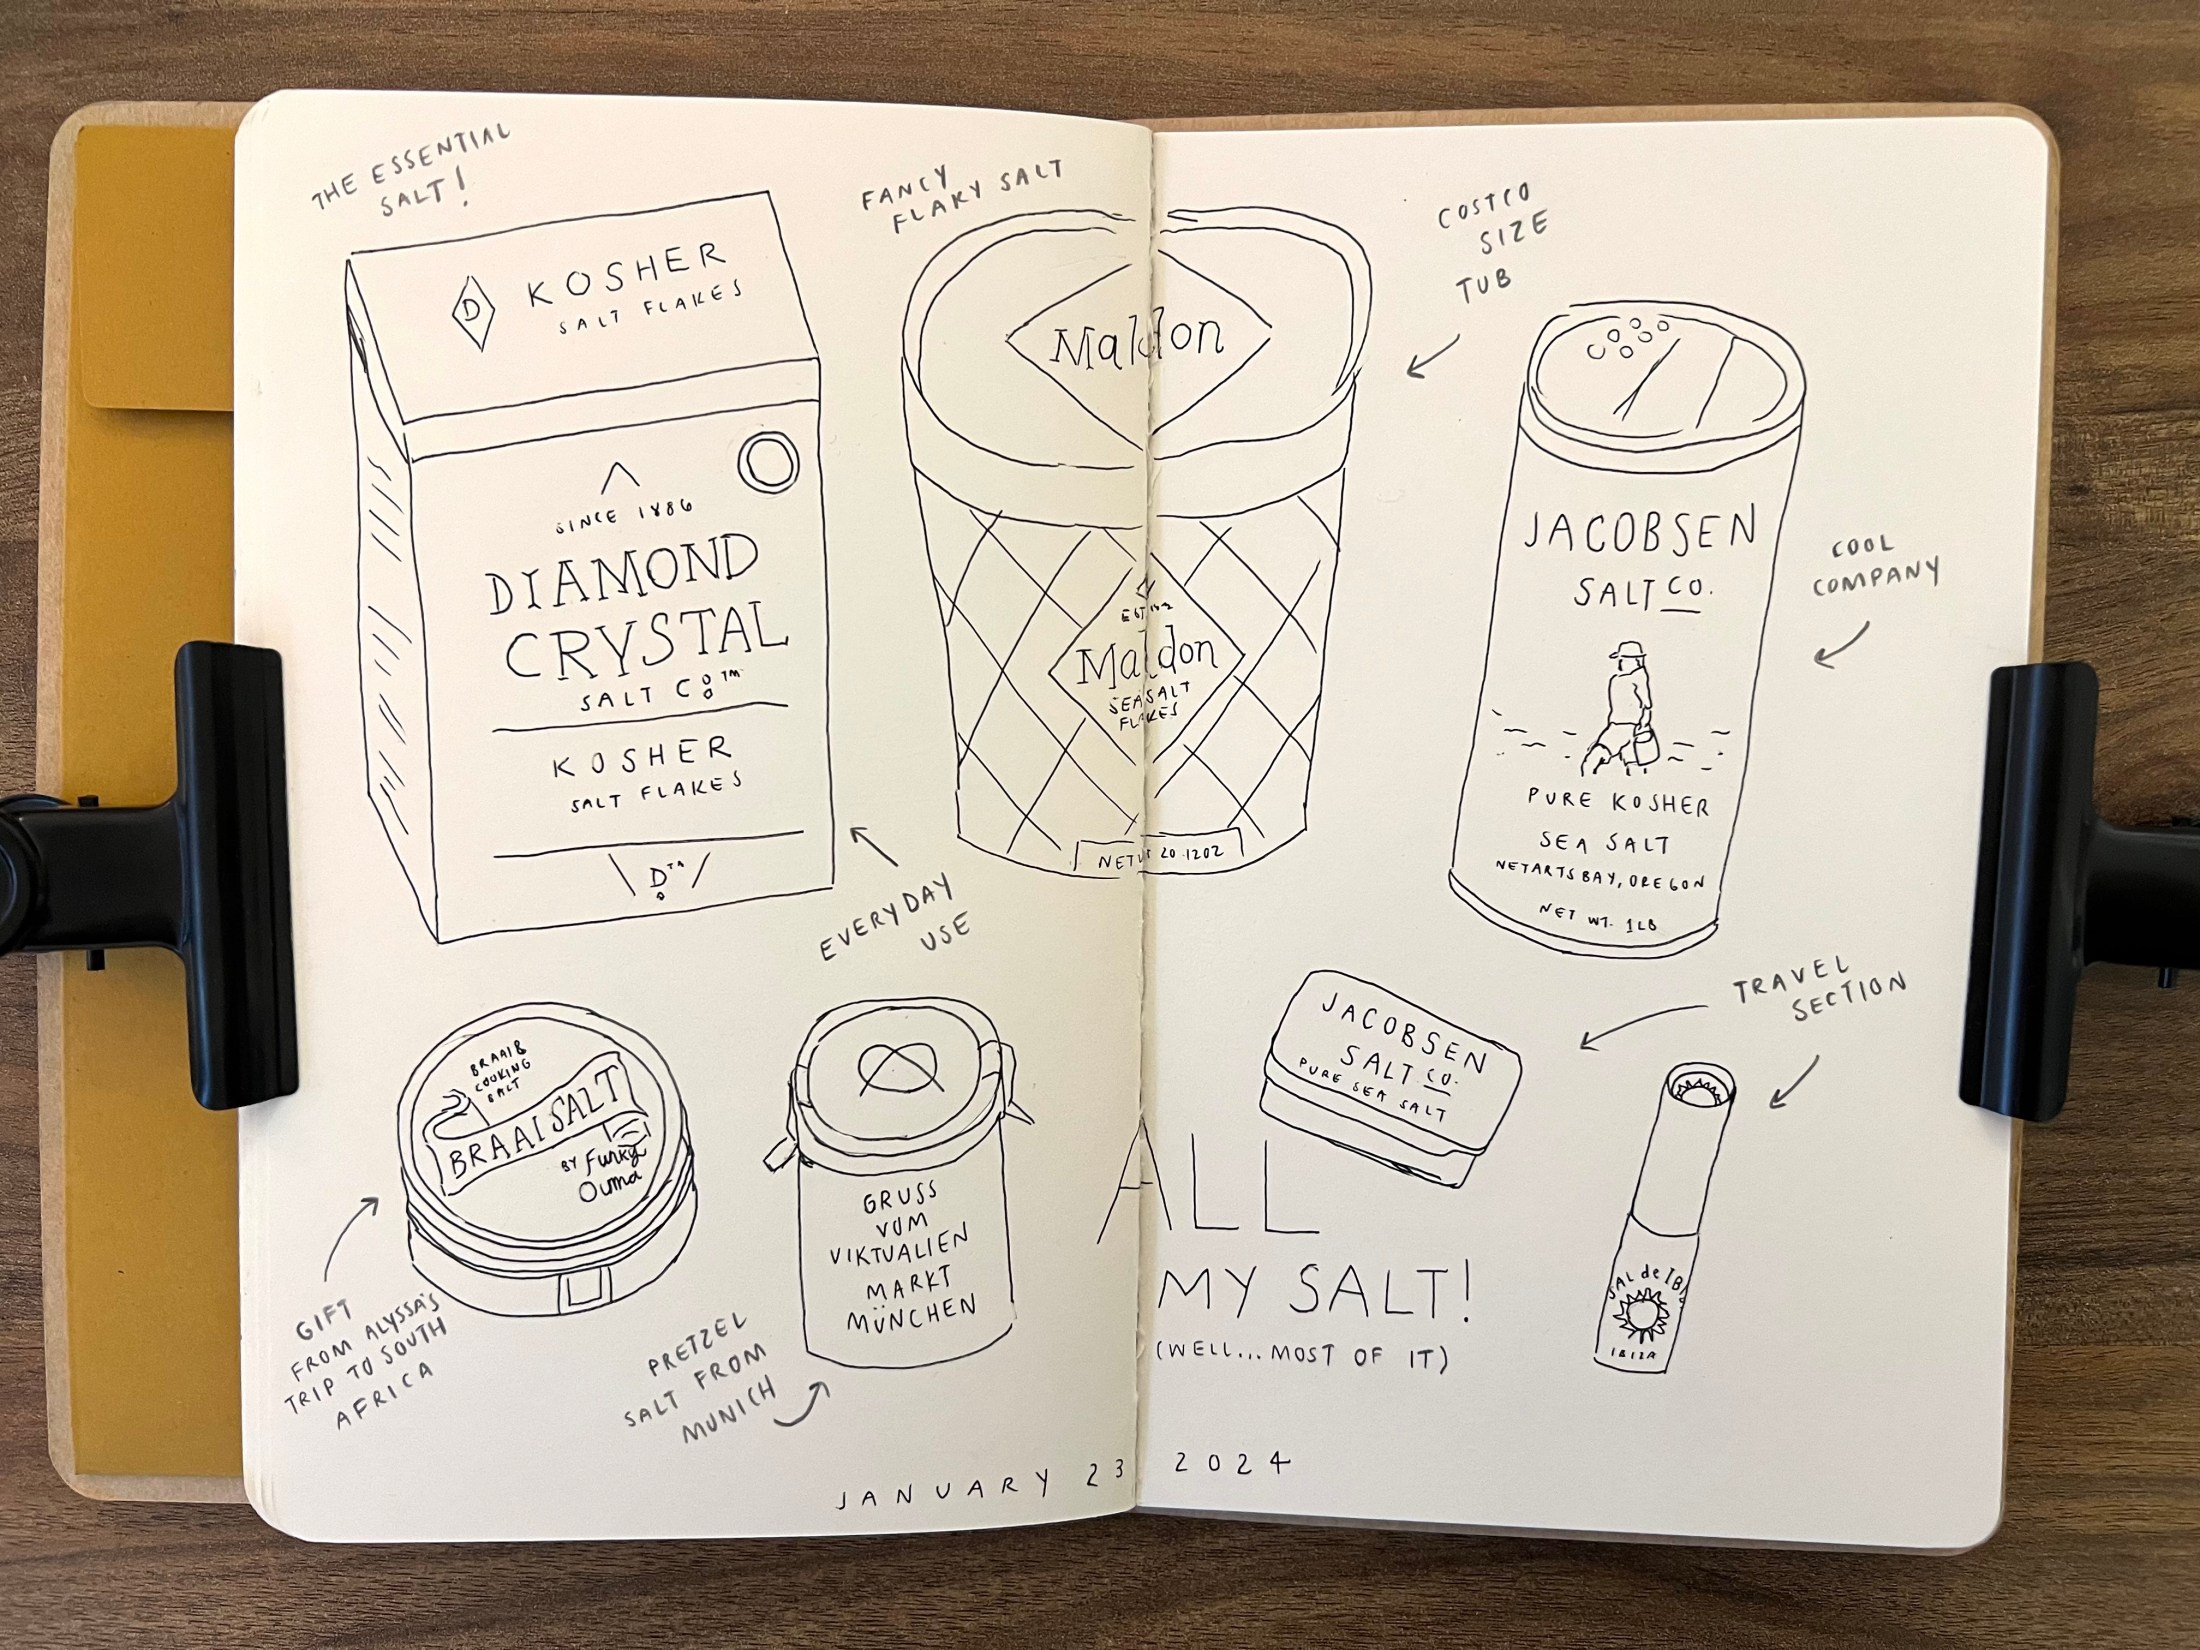 THE ESSENTIAL
SALT!
D KOSHER
SALT FLAKES
SINCE 1886
DIAMOND
CRYSTAL
SALT CO.™
KOSHER
SALT FLAKES
D
EVERYDAY
USE
FANCY
FLAKY SALT
Maldon
Maldon
SEA SALT
FLAKES
COSTCO
SIZE
TUB
JACOBSEN
SALT CO.
PURE KOSHER
SEA SALT
NETARTS BAY, OREGON
NET WT. 1LB
COOL
COMPANY
BRAAI &
COOKING
SALT
BRAAI SALT
BY Funky
Ouma
GIFT
FROM ALYSSA'S
TRIP TO SOUTH
AFRICA
GRUSS
VOM
VIKTUALIEN
MARKT
MÜNCHEN
PRETZEL
SALT FROM
MUNICH
JACOBSEN
SALT CO.
PURE SEA SALT
TRAVEL
SECTION
SAL de
IBIZA
ALL
MY SALT!
(WELL...MOST OF IT)
JANUARY 23 2024